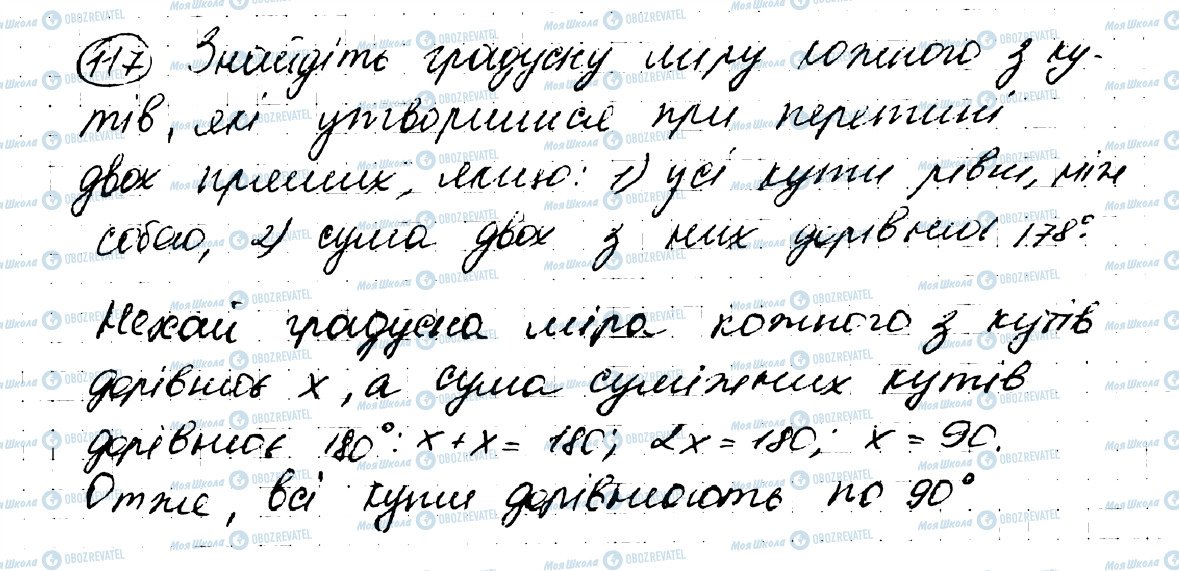 117 Знайдіть градусну міру кожного з ку-
тів, які утворилися при перетині
двох прямих, якщо: 1) усі кути рівні між
собою, 2) сума двох з них дорівнює 178°.
Нехай градусна міра кожного з кутів
дорівнює х, а сума суміжних кутів
дорівнює 180°: х + х = 180; 2х = 180; х = 90.
Отже, всі кути дорівнюють по 90°